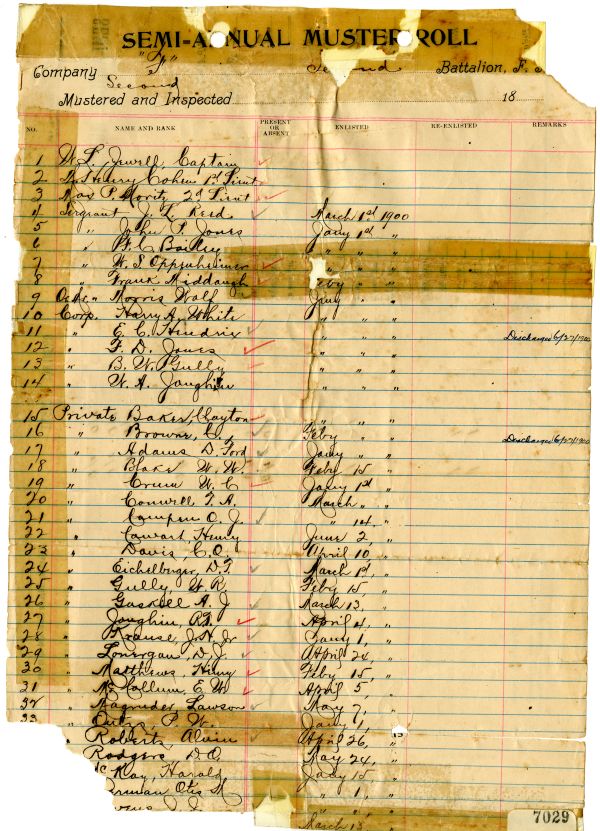 SEMI-ANNUAL MUSTER ROLL
Company "F" Second Battalion, F. S.
Second
Mustered and Inspected 18
NO. NAME AND RANK PRESENT OR ABSENT ENLISTED RE-ENLISTED REMARKS
1 W. L. Jewell, Captain
2 Henry Cohen 1st Lieut
3 Max P. Moritz, 2d Lieut
4 Sergeant J. L. Reed March 1st 1900
5 " John P. Jones Jany 1st "
6 " Bailey
7 " W. S. Oppenheimer
8 " Frank Middaugh Feby "
9 " Morris Wolf Jany "
10 Corp. Harry A. White " " "
11 " E. C. Hendrix " " " Discharged 6/27/1900
12 " F. D. Jones " " "
13 " B. W. Gully " " "
14 " W. A. Joughin " " "
15 Private Baker, Clayton " " "
16 " Browne, C. Feby " Discharged 6/27/1900
17 " Adams D. Ford Jany " "
18 " Blake W. W. Feby 15 "
19 " Crum W. C. Jany 1st "
20 " Conwill T. A. March "
21 " Campen O. J. " 14, "
22 " Cowart, Henry June 2, "
23 " Davis, C. O. April 10 "
24 " Eichelberger, D. T. March 1st, "
25 " Gully, W. R. Feby 15, "
26 " Gaskell A. J March 13, "
27 " Joughin, R. T. April 4, "
28 " Krause, J. H. Jr Jany 1, "
29 " Lonergan, D. J. April 24, "
30 " Matthews, Henry Feby 15, "
31 " McCallum, E. W. April 5, "
32 " Magruder Lawson May 7, "
33 P. W. Jany 1, "
" Roberts, Alvin April 26, "
Rodgers D. C. May 24, "
McKay, Harold Jany 15 "
Otis " 1, "
" " "
March 13 "
7029